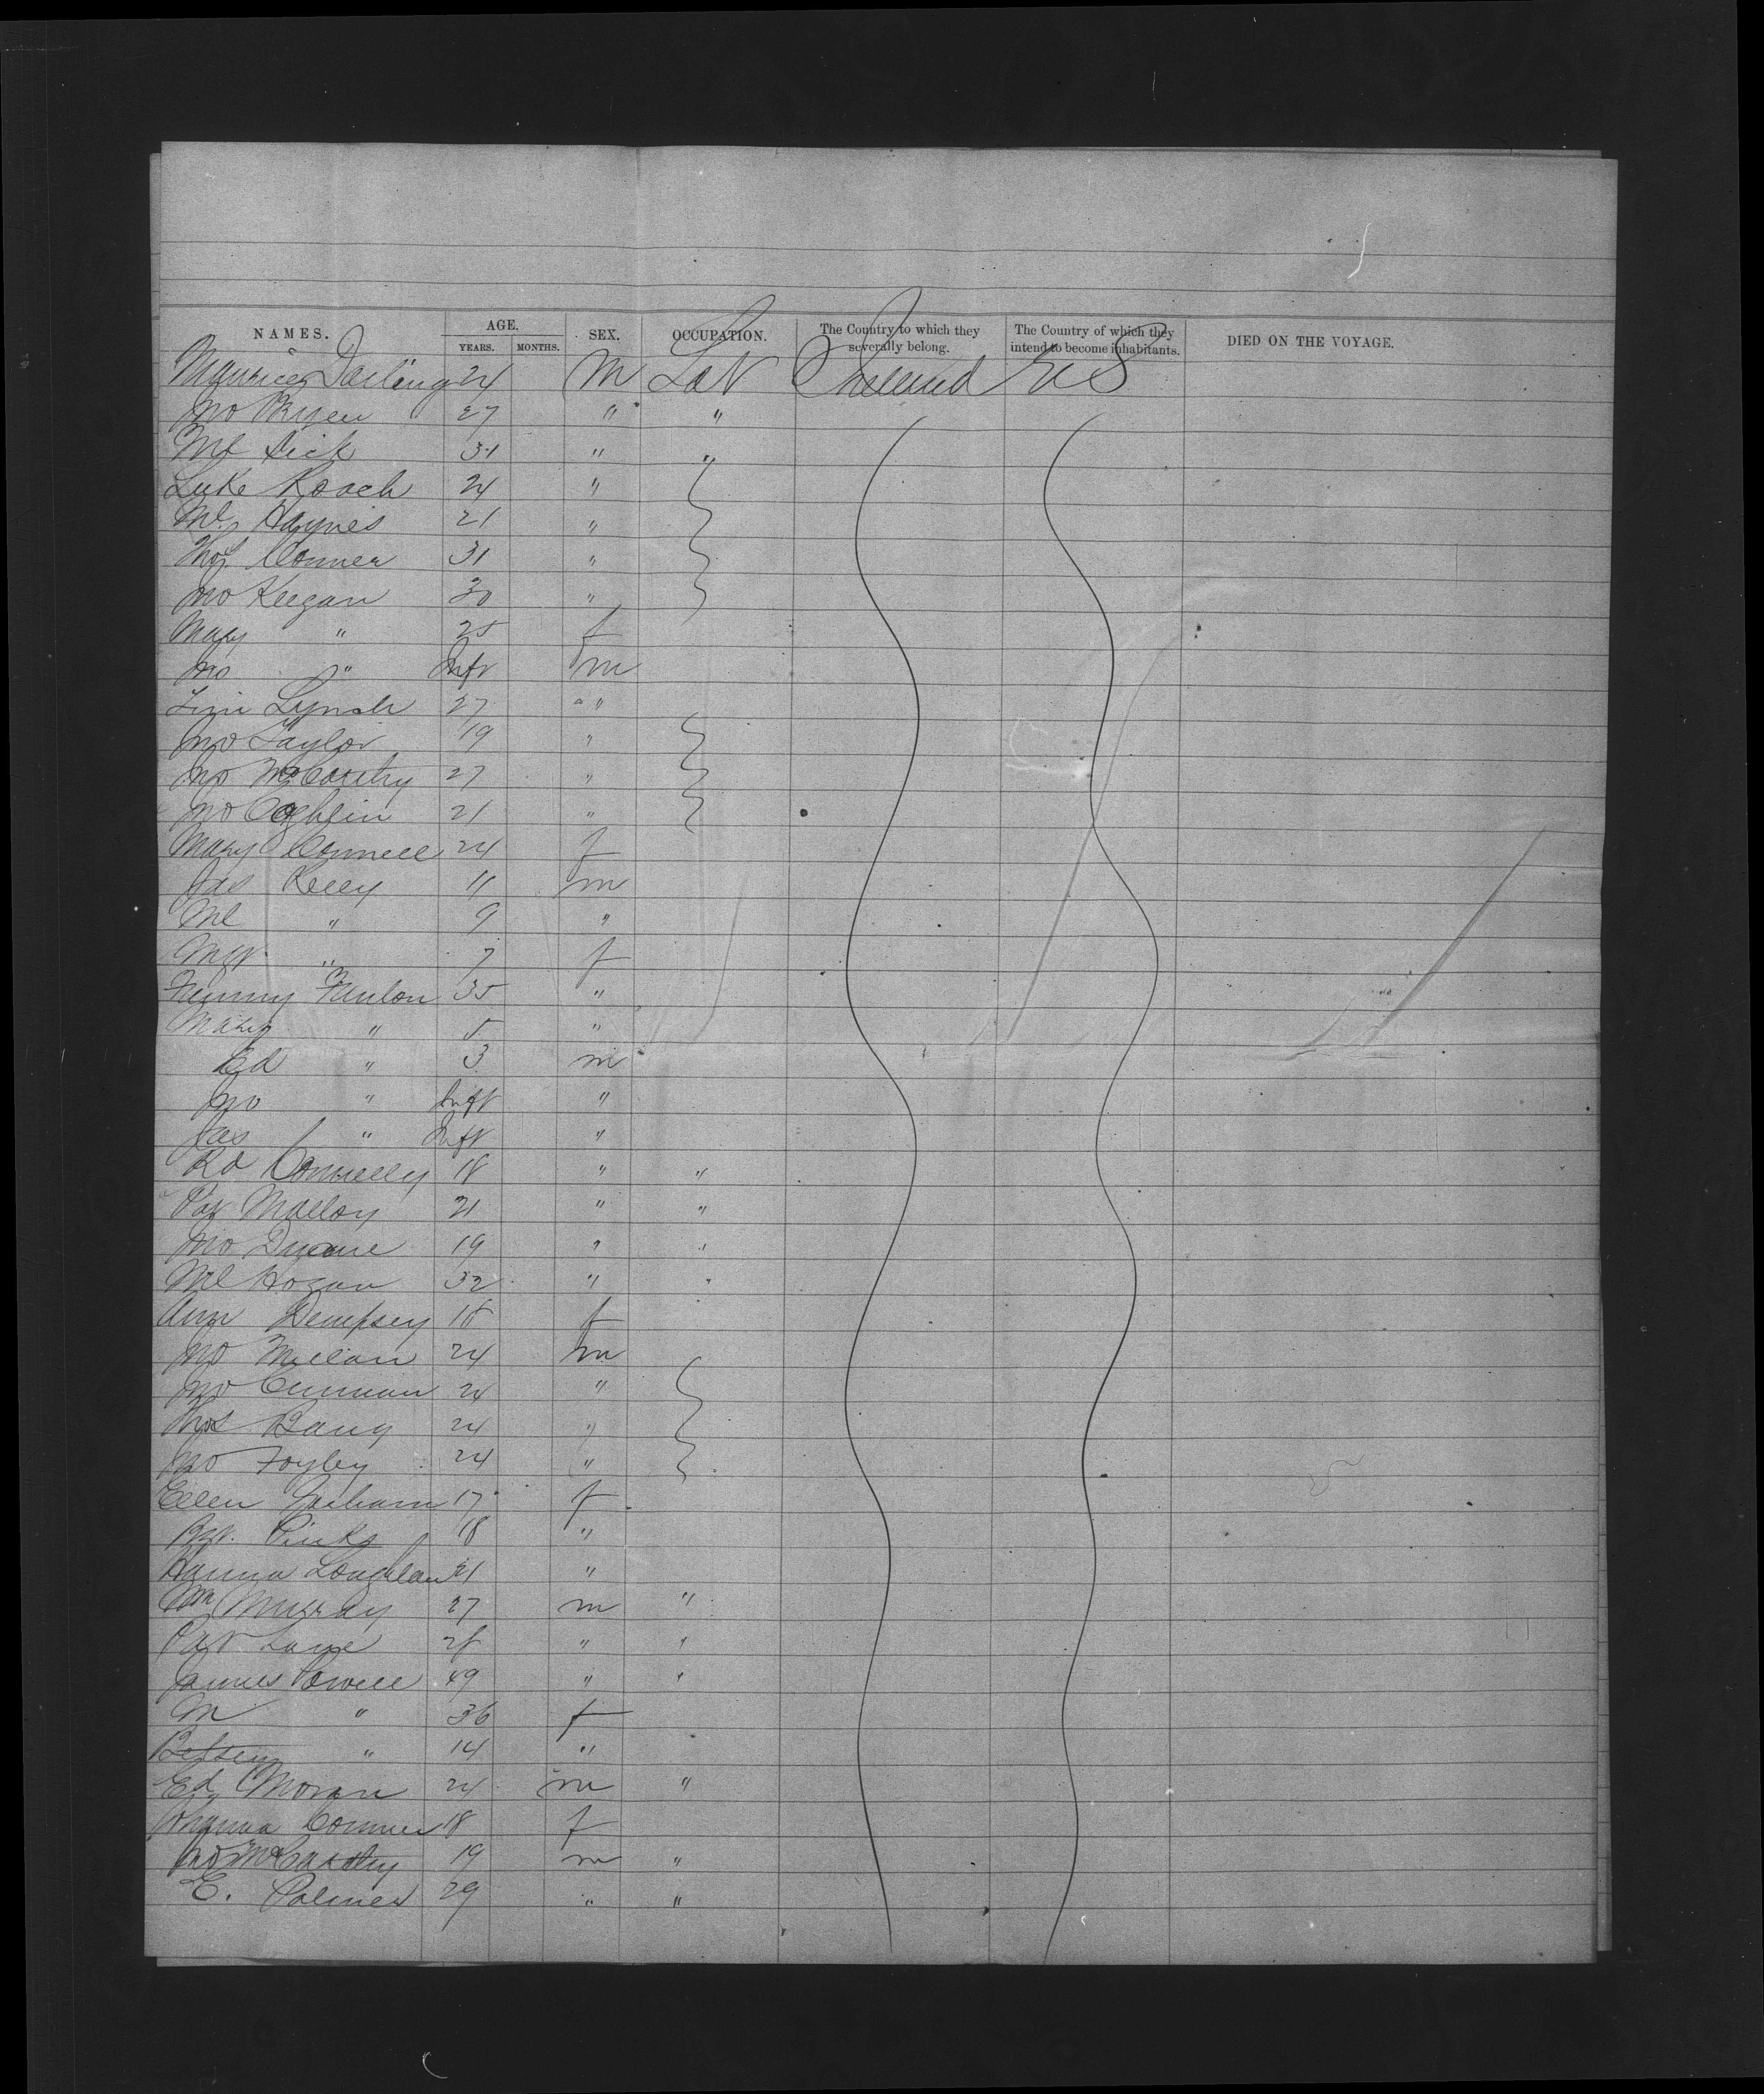 NAMES. AGE. SEX. OCCUPATION. The Country to which they severally belong. The Country of which they intend to become inhabitants. DIED ON THE VOYAGE.
YEARS. MONTHS.
Maurice Darling 24 M Lab Ireland US
Jno Bryen 27 " "
Ml Dick 31 " "
Luke Roach 24 "
Ml Haynes 21 "
Thos Conner 31 "
Jno Keegan 30 "
Mary " 25 f
Jno " Inft m
Tim Lynch 27 "
Jno Taylor 19 "
Jno McCarthy 27 "
Jno Coghlin 21 "
Mary Connell 24 f
Jas Kelly 11 m
Ml " 9 "
Mgt " 7 f
Fanlon 35 "
Mary " 5 "
Ed " 3 m
Jno " Inft "
Jas " Inft "
Rd Connelly 18 " "
Pat Malloy 21 " "
Jno 19 " "
Ml Hogan 32 " "
Ann Dempsey 18 f
Jno 24 m
Jno 24 "
Thos 24 "
Jno 24 "
Ellen 17 f
18 "
Hanna Loughlan 21 "
Wm Murray 27 m "
Pat Lane " "
James Powell 49 " "
M " 36 f
Betsey " 14 "
Ed Moran 24 m "
Johanna Conner 18 f
Jno McCarthy 19 m "
E. Palmer 29 " "